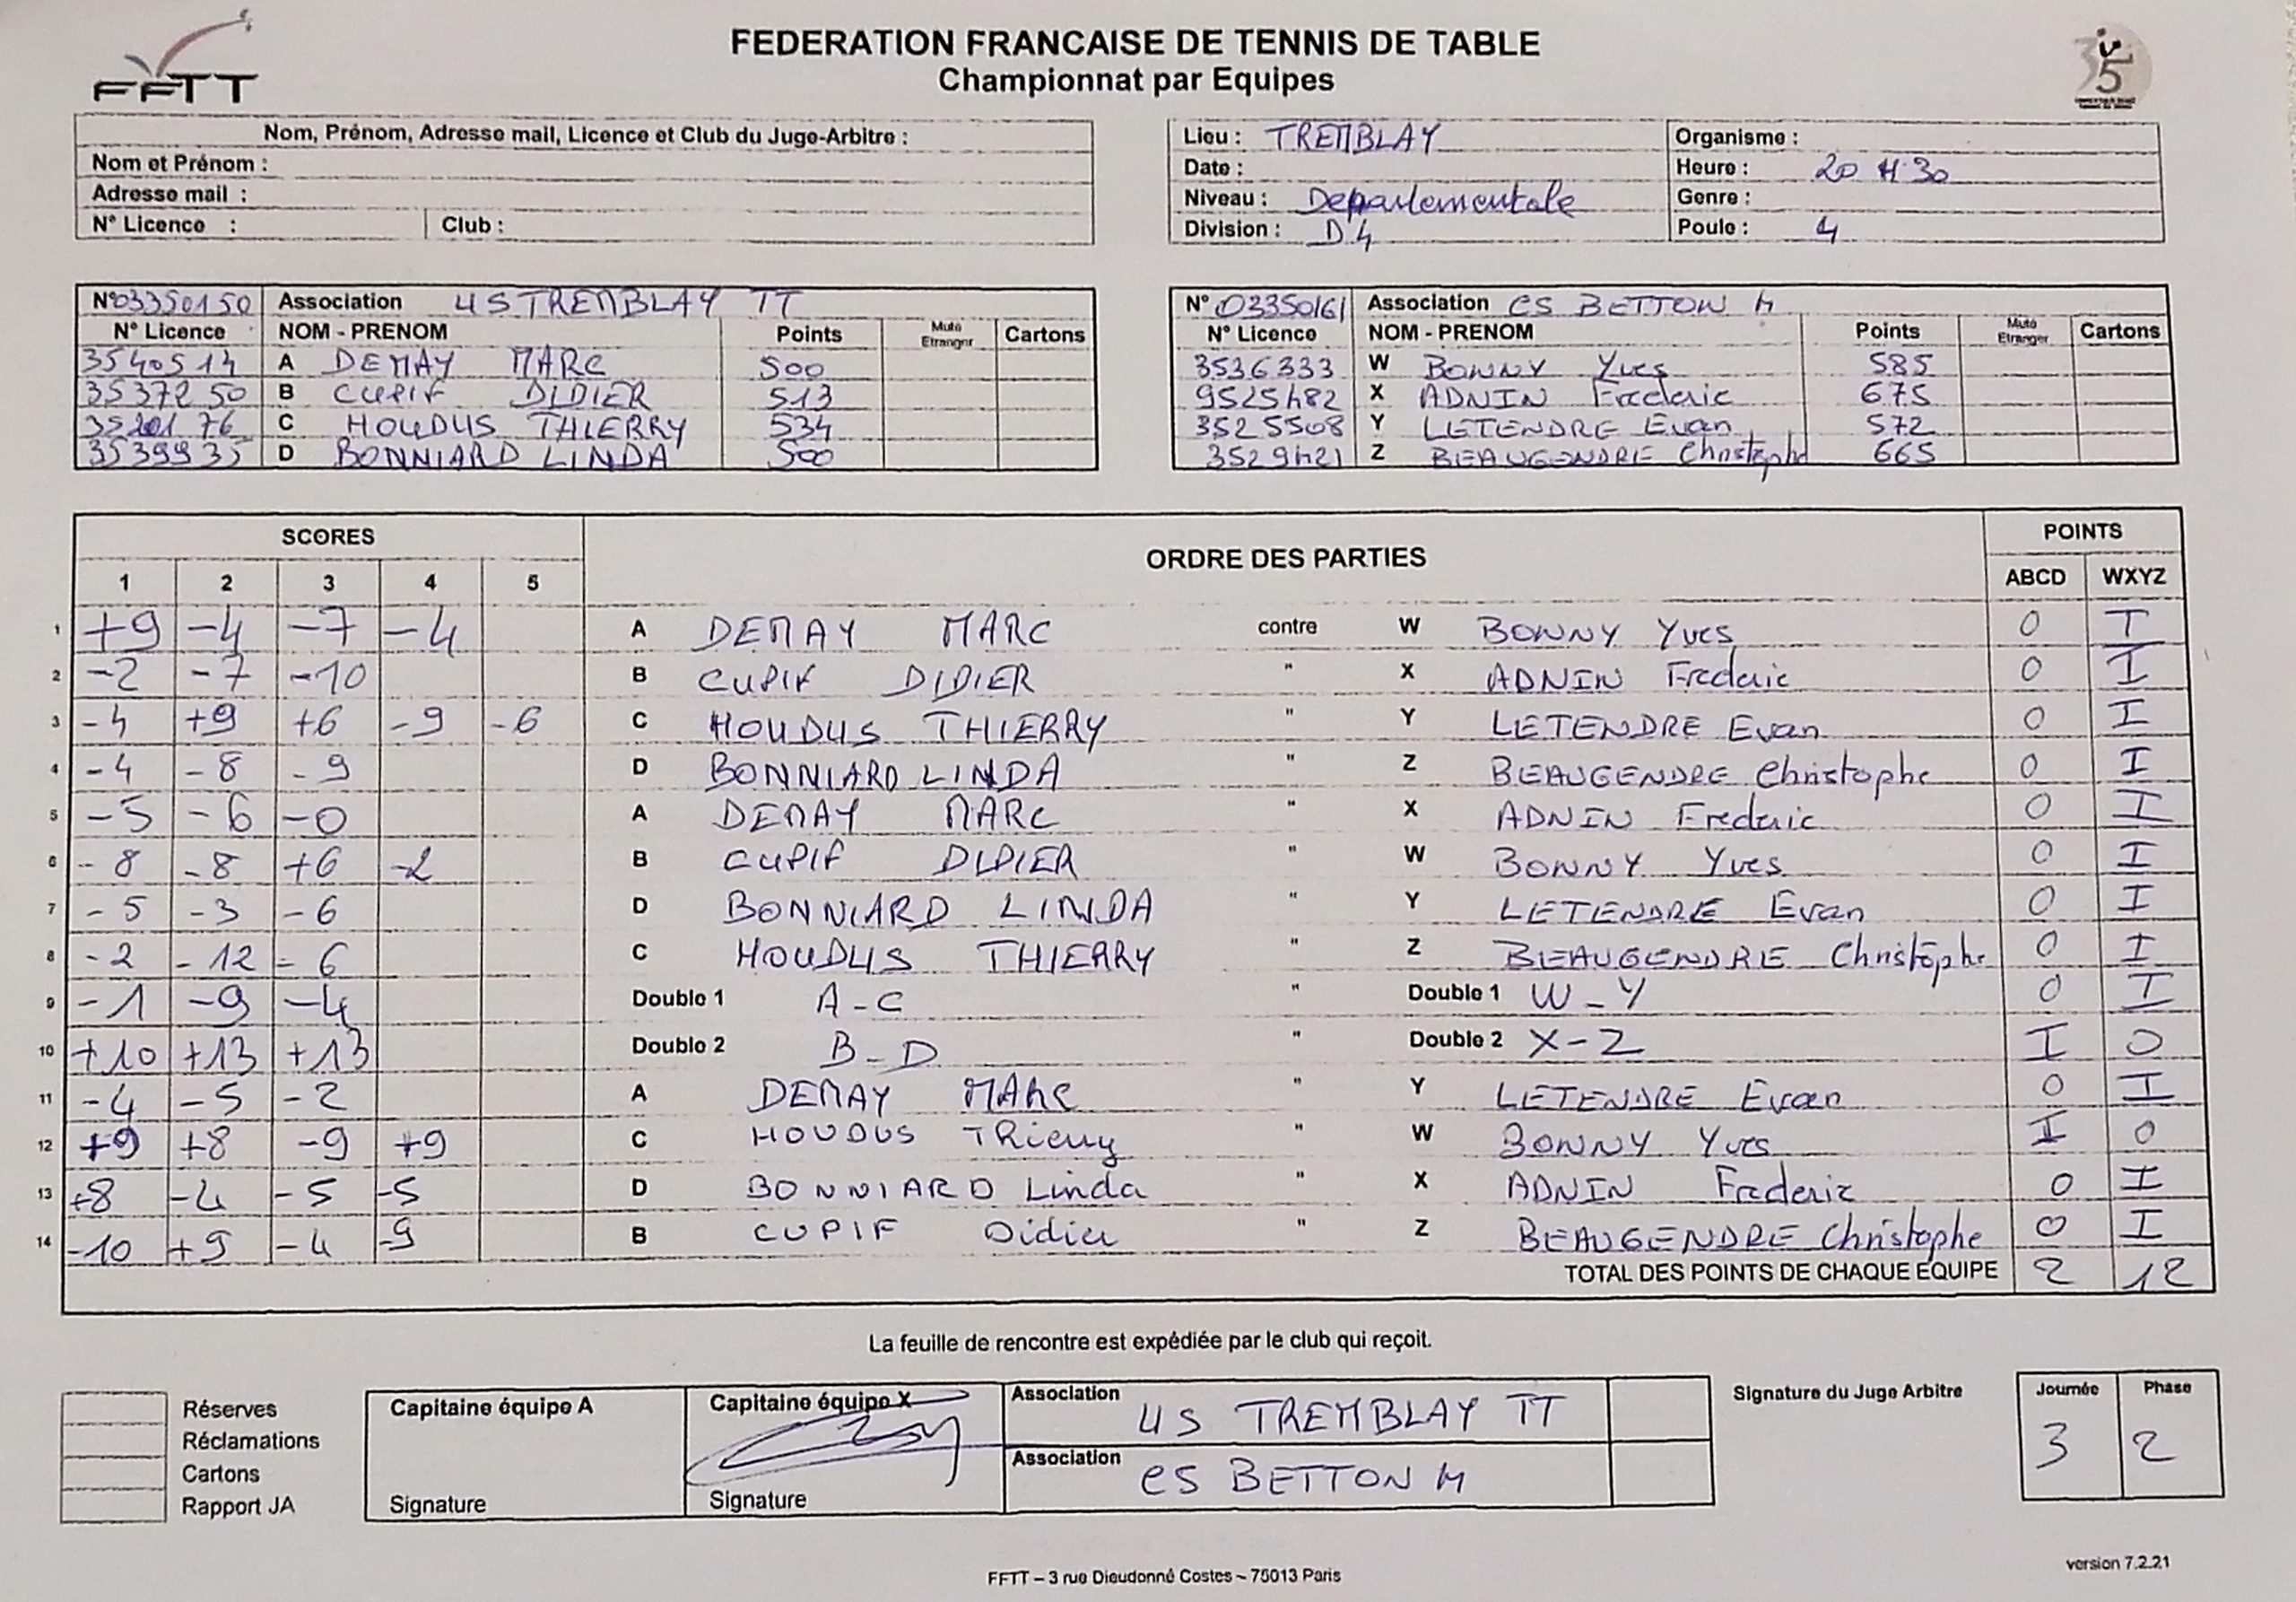 FEDERATION FRANCAISE DE TENNIS DE TABLE
Championnat par Equipes
FFTT
Nom, Prénom, Adresse mail, Licence et Club du Juge-Arbitre :
Nom et Prénom :
Adresse mail :
N° Licence : Club :
Lieu : TREMBLAY Organisme :
Date : Heure : 20 H 30
Niveau : Departementale Genre :
Division : D4 Poule : 4
N° 03350150 Association US TREMBLAY TT
N° Licence NOM - PRENOM Points Muté Etranger Cartons
3540514 A DEMAY MARC 500
3537250 B CUPIF DIDIER 513
3520176 C HOUDUS THIERRY 534
3539935 D BONNIARD LINDA 500
N° 03350161 Association CS BETTON 4
N° Licence NOM - PRENOM Points Muté Etranger Cartons
3536333 W BONNY Yves 585
9525482 X ADNIN Frederic 675
3525508 Y LETENDRE Evan 572
3529421 Z BEAUGENDRE Christophe 665
SCORES ORDRE DES PARTIES POINTS
1 2 3 4 5 ABCD WXYZ
1 +9 -4 -7 -4 A DEMAY MARC contre W BONNY Yves 0 I
2 -2 -7 -10 B CUPIF DIDIER " X ADNIN Frederic 0 I
3 -4 +9 +6 -9 -6 C HOUDUS THIERRY " Y LETENDRE Evan 0 I
4 -4 -8 -9 D BONNIARD LINDA " Z BEAUGENDRE Christophe 0 I
5 -5 -6 -0 A DEMAY MARC " X ADNIN Frederic 0 I
6 -8 -8 +6 -2 B CUPIF DIDIER " W BONNY Yves 0 I
7 -5 -3 -6 D BONNIARD LINDA " Y LETENDRE Evan 0 I
8 -2 -12 -6 C HOUDUS THIERRY " Z BEAUGENDRE Christophe 0 I
9 -1 -9 -4 Double 1 A-C " Double 1 W-Y 0 I
10 +10 +13 +13 Double 2 B-D " Double 2 X-Z I 0
11 -4 -5 -2 A DEMAY MARC " Y LETENDRE Evan 0 I
12 +9 +8 -9 +9 C HOUDUS Thierry " W BONNY Yves I 0
13 +8 -4 -5 -5 D BONNIARD Linda " X ADNIN Frederic 0 I
14 -10 +9 -4 -9 B CUPIF Didier " Z BEAUGENDRE Christophe 0 I
TOTAL DES POINTS DE CHAQUE EQUIPE 2 12
La feuille de rencontre est expédiée par le club qui reçoit.
Réserves
Réclamations
Cartons
Rapport JA
Capitaine équipe A
Signature
Capitaine équipe X
Signature
Association US TREMBLAY TT
Association CS BETTON 4
Signature du Juge Arbitre
Journée Phase
3 2
FFTT – 3 rue Dieudonné Costes ~ 75013 Paris
version 7.2.21